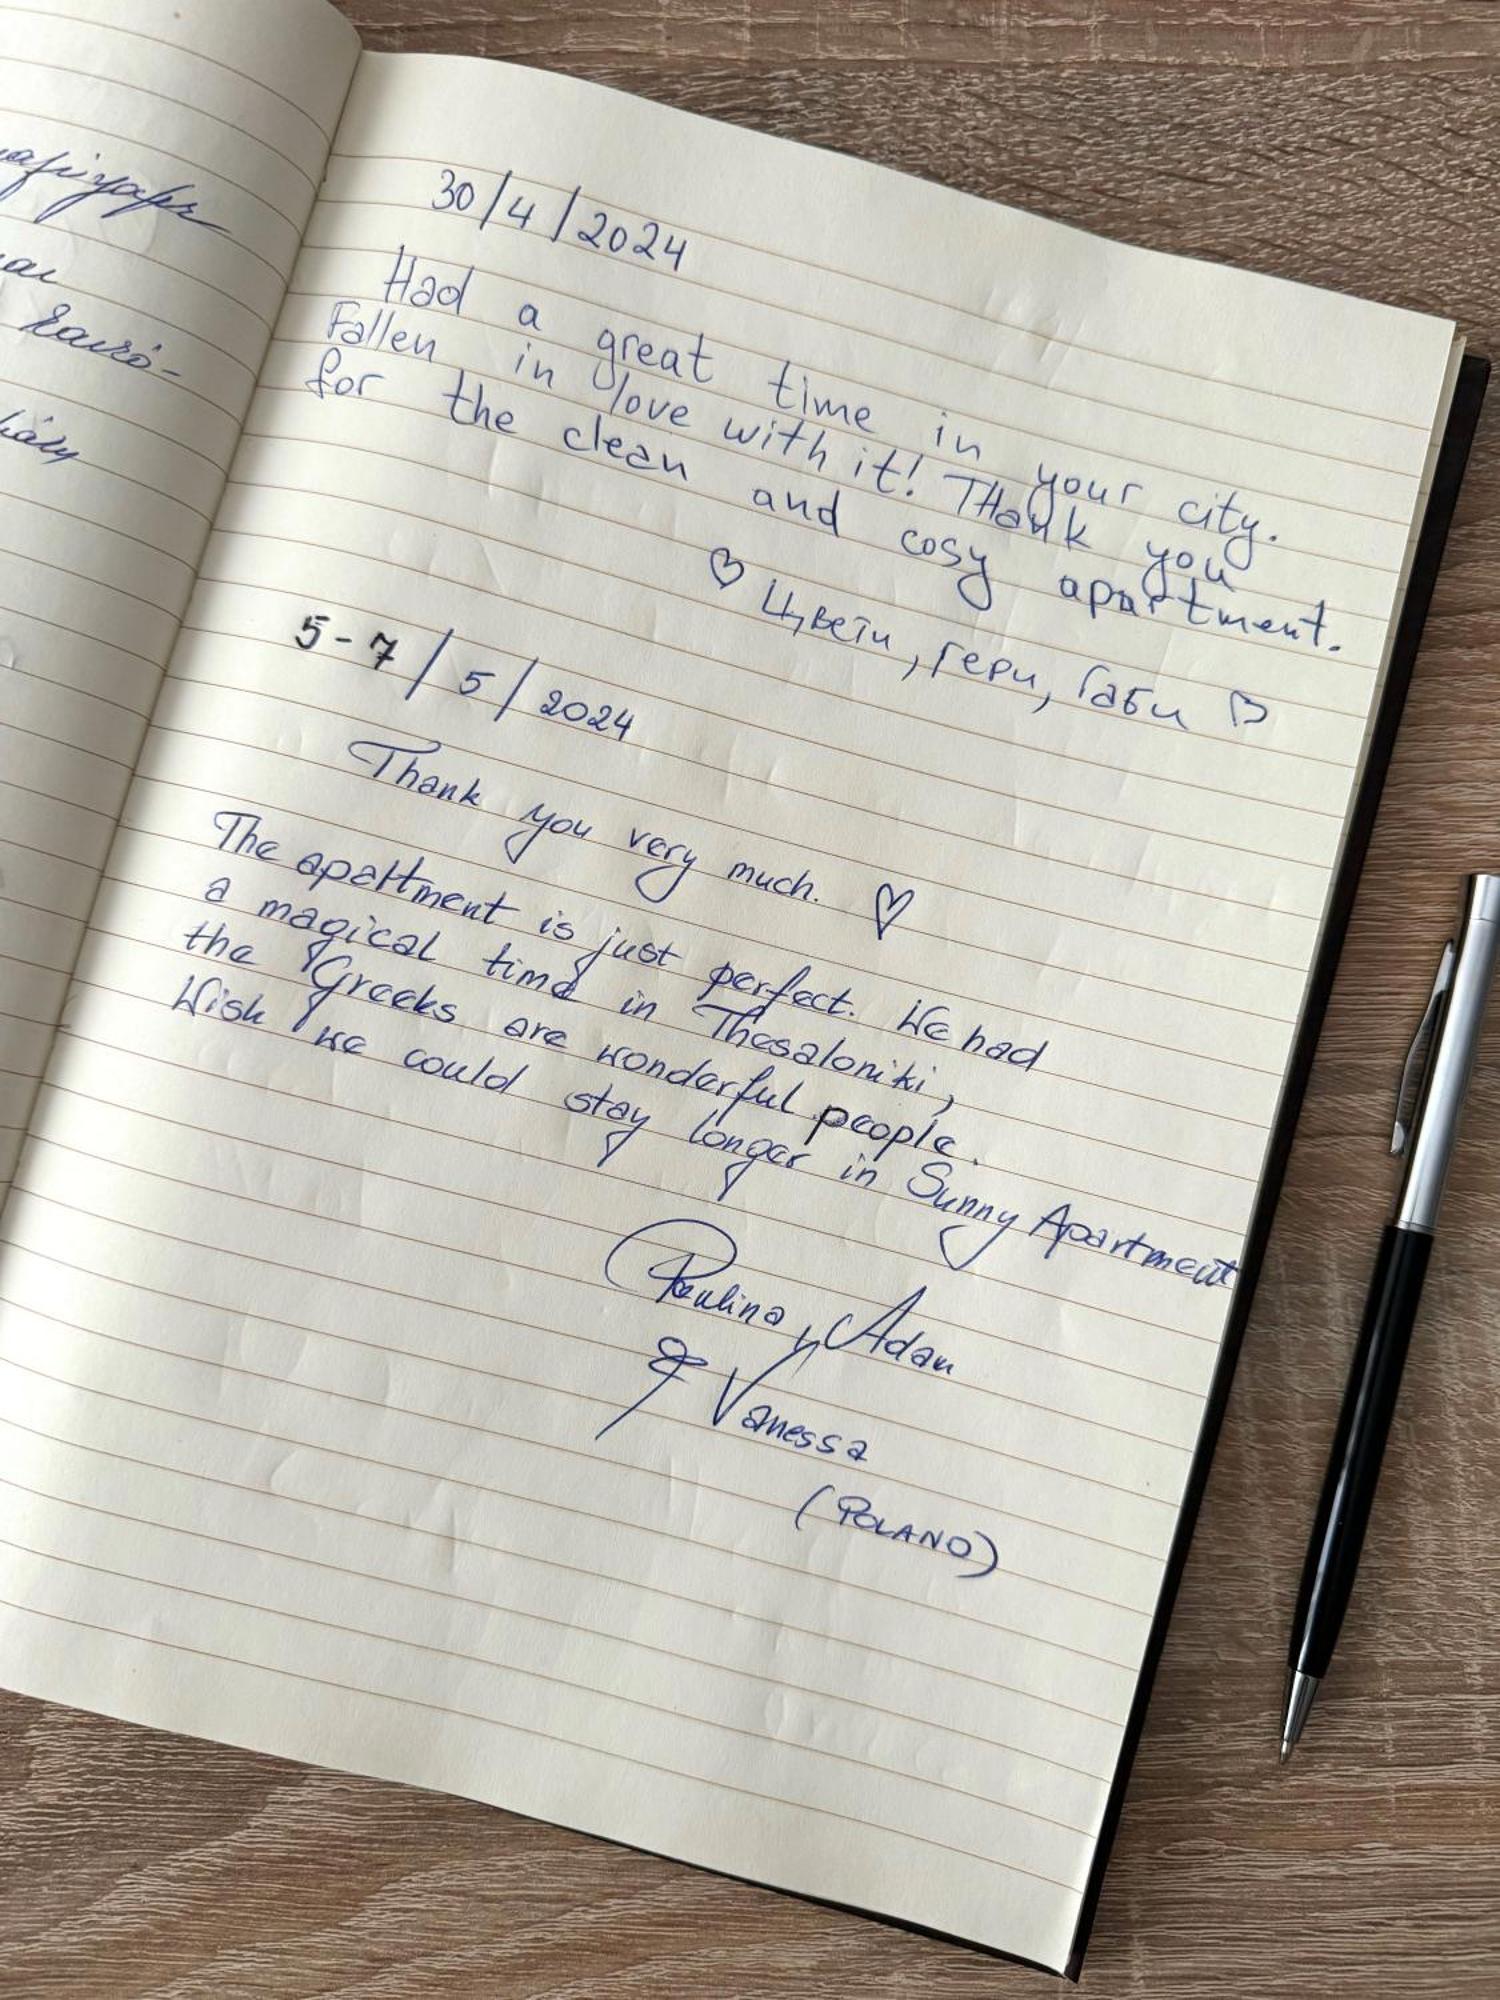 30/4/2024
Had a great time in your city.
Fallen in love with it! THank you
for the clean and cosy apartment.
♡ Цвети, Гери, Габи ♡
5-7/5/2024
Thank you very much. ♡
The apartment is just perfect. We had
a magical time in Thesaloniki,
the Greeks are wonderful people.
Wish we could stay longer in Sunny Apartment
Paulina, Adam
& Vanessa
(POLAND)